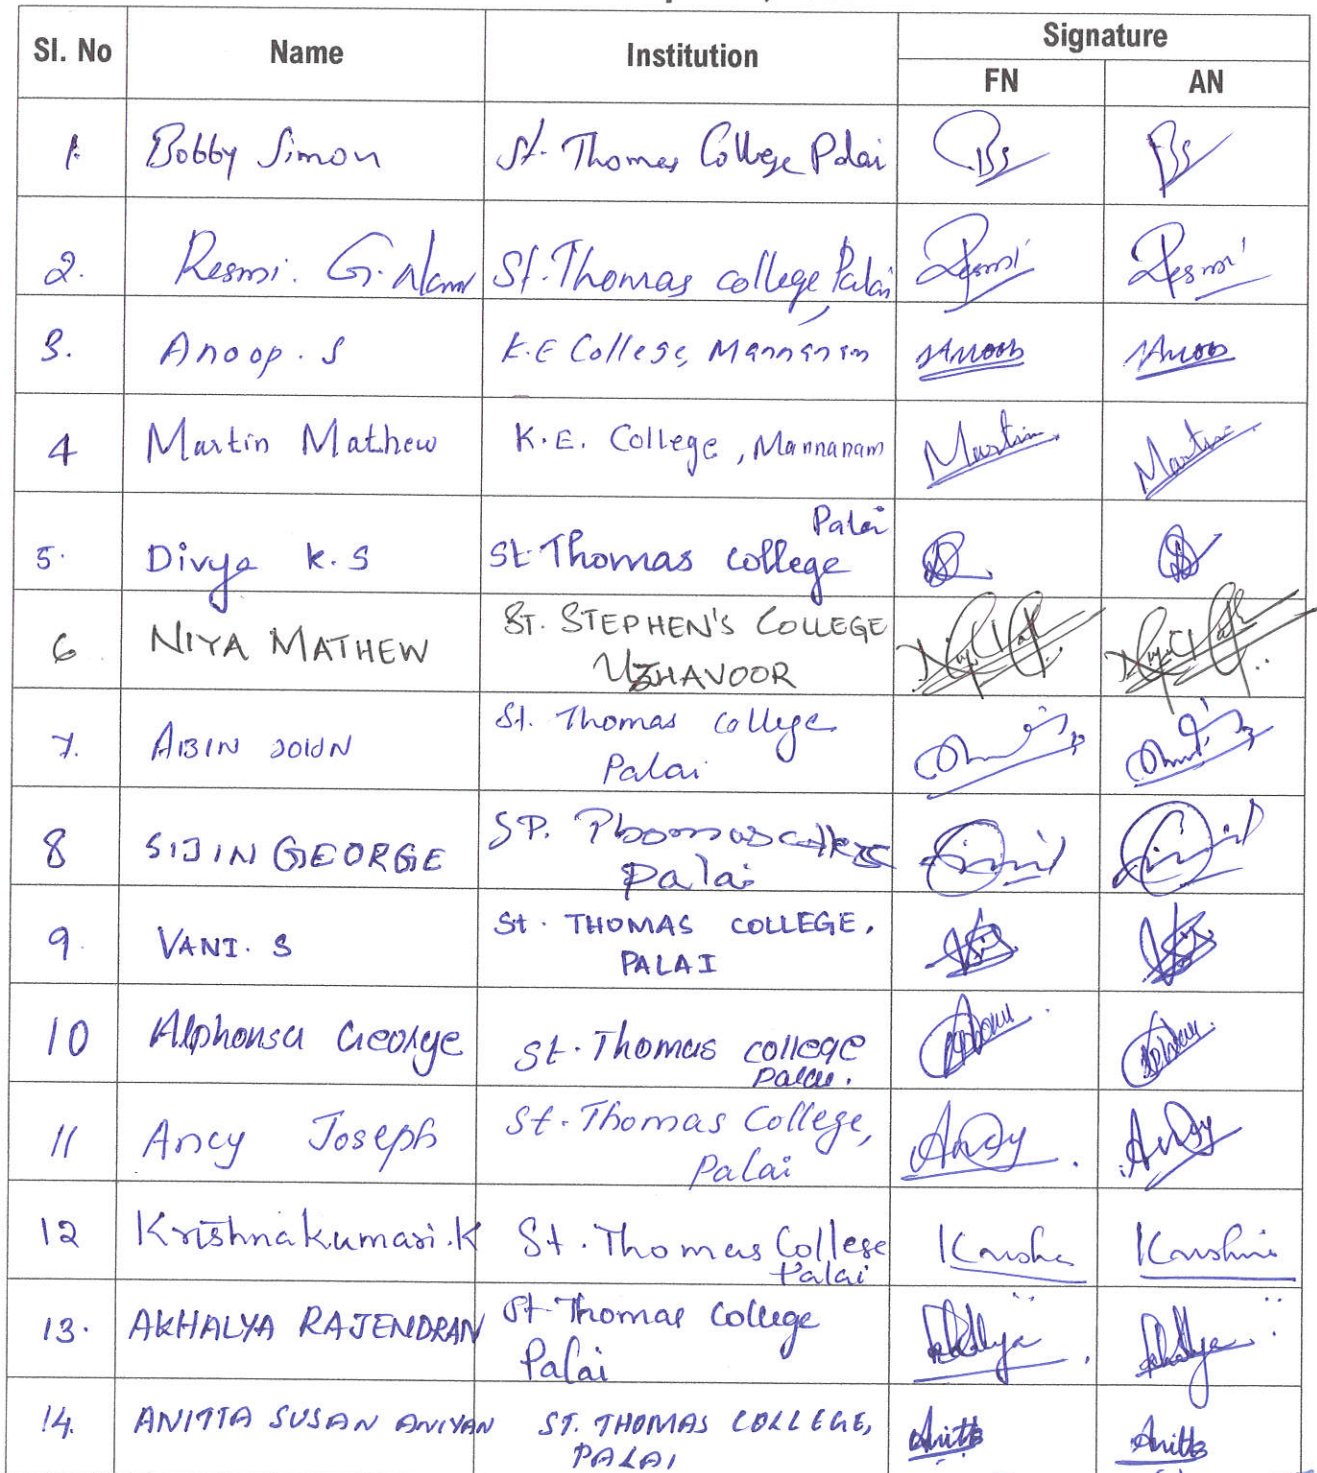 Signature
Sl. No Name Institution
FN AN
1. Bobby Simon St. Thomas College Palai Bs Bs
2. Resmi. G. St. Thomas college Palai Resmi Resmi
3. Anoop. S K.E College, Mannanam Anoop Anoop
4 Martin Mathew K.E. College, Mannanam Martin Martin
Palai
5. Divya K.S St. Thomas college
6 NIYA MATHEW ST. STEPHEN'S COLLEGE
UZHAVOOR
7. ABIN JOHN St. Thomas college
Palai
8 SIJIN GEORGE ST. Thomas college
Palai
9. VANI. S St. THOMAS COLLEGE,
PALAI
10 Alphonsa George St. Thomas college
Palai.
11 Ancy Joseph St. Thomas College, Ancy Ancy
Palai
12 Krishnakumari.K St. Thomas College
Palai
13. AKHALYA RAJENDRAN St Thomas College Akhalya Akhalya
Palai
14. ANITTA SUSAN ANIYAN ST. THOMAS COLLEGE, Anitta Anitta
PALAI